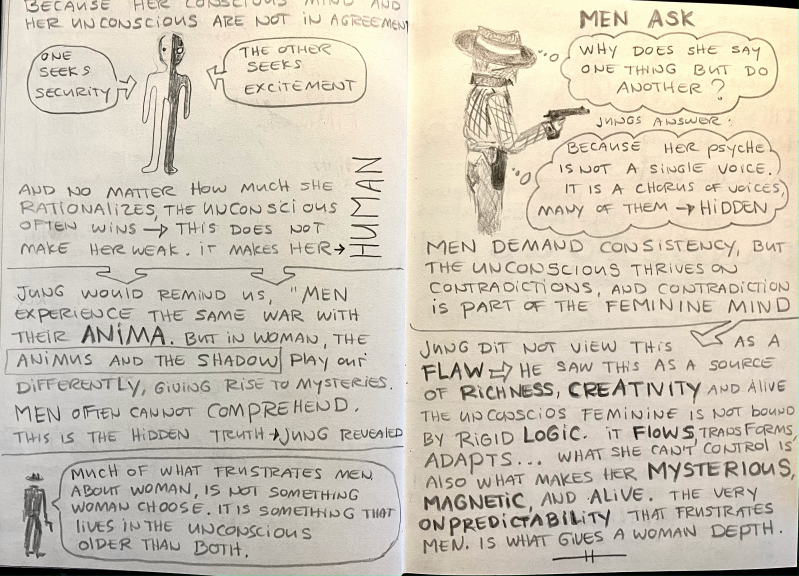 BECAUSE HER CONSCIOUS MIND AND
HER UNCONSCIOUS ARE NOT IN AGREEMENT
ONE
SEEKS
SECURITY
THE OTHER
SEEKS
EXCITEMENT
AND NO MATTER HOW MUCH SHE
RATIONALIZES, THE UNCONSCIOUS
OFTEN WINS → THIS DOES NOT
MAKE HER WEAK. IT MAKES HER →
HUMAN
JUNG WOULD REMIND US, "MEN
EXPERIENCE THE SAME WAR WITH
THEIR ANIMA. BUT IN WOMAN, THE
ANIMUS AND THE SHADOW PLAY OUT
DIFFERENTLY, GIVING RISE TO MYSTERIES.
MEN OFTEN CANNOT COMPREHEND.
THIS IS THE HIDDEN TRUTH → JUNG REVEALED
MUCH OF WHAT FRUSTRATES MEN
ABOUT WOMAN, IS NOT SOMETHING
WOMAN CHOOSE. IT IS SOMETHING THAT
LIVES IN THE UNCONSCIOUS
OLDER THAN BOTH.
MEN ASK
WHY DOES SHE SAY
ONE THING BUT DO
ANOTHER?
JUNGS ANSWER:
BECAUSE HER PSYCHE
IS NOT A SINGLE VOICE.
IT IS A CHORUS OF VOICES,
MANY OF THEM → HIDDEN
MEN DEMAND CONSISTENCY, BUT
THE UNCONSCIOUS THRIVES ON
CONTRADICTIONS, AND CONTRADICTION
IS PART OF THE FEMININE MIND
JUNG DIT NOT VIEW THIS AS A
FLAW ⇒ HE SAW THIS AS A SOURCE
OF RICHNESS, CREATIVITY AND ALIVE
THE UNCONSCIOS FEMININE IS NOT BOUND
BY RIGID LOGIC. IT FLOWS, TRANSFORMS,
ADAPTS... WHAT SHE CAN'T CONTROL IS
ALSO WHAT MAKES HER MYSTERIOUS,
MAGNETIC, AND ALIVE. THE VERY
ONPREDICTABILITY THAT FRUSTRATES
MEN. IS WHAT GIVES A WOMAN DEPTH.